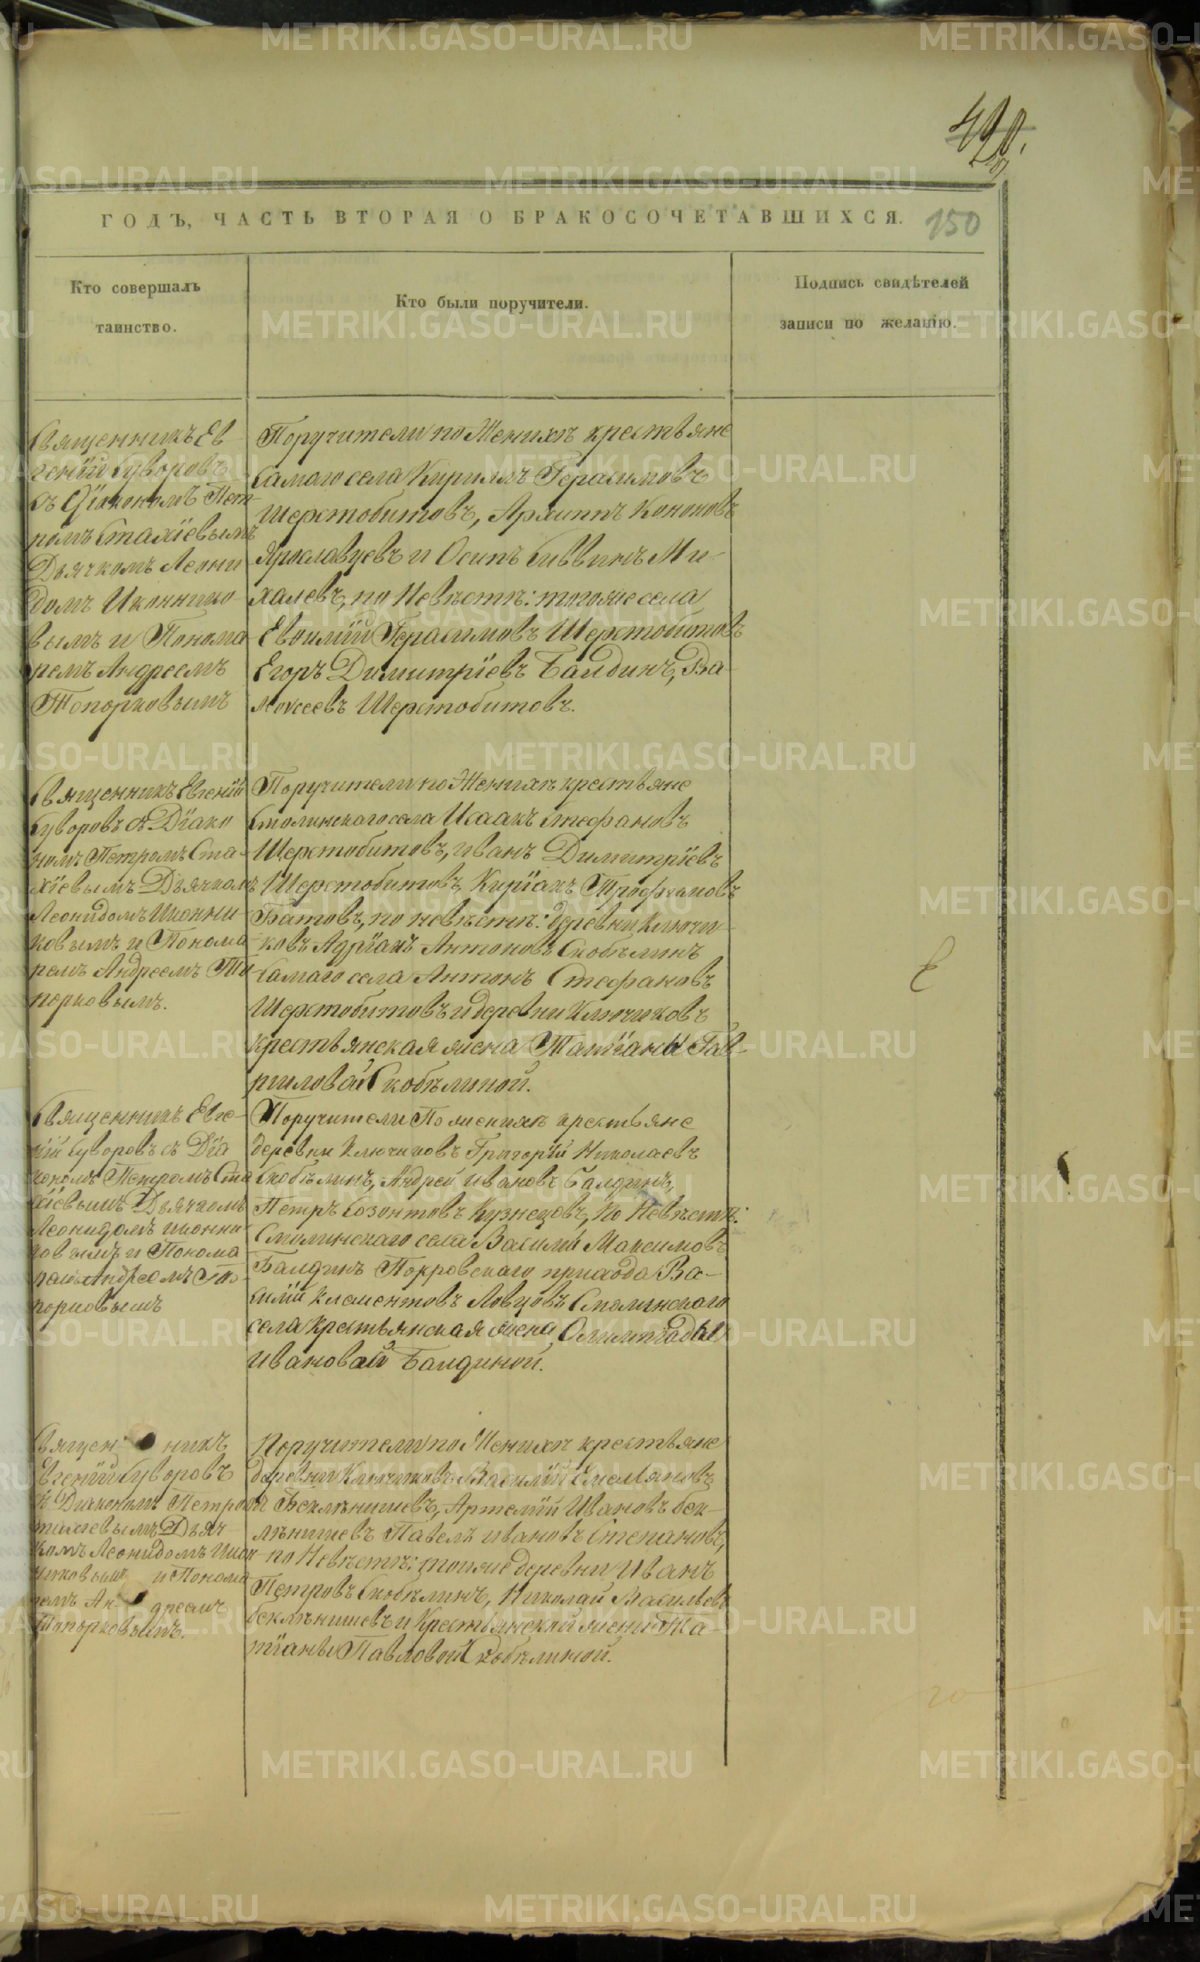 ГОДЪ, ЧАСТЬ ВТОРАЯ О БРАКОСОЧЕТАВШИХСЯ.
150
Кто совершалъ
таинство.
Кто были поручители.
Подпись свидѣтелей
записи по желанію.
Священникъ Ев
геній Суворовъ
съ Діакономъ Пет-
ромъ Стахіевымъ
Дьячкомъ Леони
домъ Иконнико
вымъ и Понома
ремъ Андреемъ
Топорковымъ
Поручители по Женихѣ крестьяне
самаго села Кириллъ Герасимовъ
Шерстобитовъ, Архипъ Кононовъ
Ярославцевъ и Осипъ Саввинъ Ми-
халевъ, по Невѣстѣ: тогоже села
Герасимовъ Шерстобитовъ
Егоръ Димитріевъ Балдинъ,
Шерстобитовъ.
Священникъ Евгеній
Суворовъ съ Діако
номъ Петромъ Ста-
хіевымъ Дьячкомъ
Леонидомъ Иконни
ковымъ и Понома
ремъ Андреемъ То
порковымъ.
Поручители по Женихѣ крестьяне
Смолинскаго села Исаакъ Стефановъ
Шерстобитовъ, Иванъ Димитріевъ
Шерстобитовъ, Киріакъ Трофимовъ
Батовъ, по невѣстѣ: деревни Ключи-
ковъ Адріанъ Антоновъ Скобѣлинъ
самаго села Антонъ Стефановъ
Шерстобитовъ и деревни Ключиковъ
крестьянская жена Татіаны Гав-
риловой Скобѣлиной.
Священникъ Евге-
ній Суворовъ съ Діа
кономъ Петромъ Ста
хіевымъ Дьячкомъ
Леонидомъ Иконни
ковымъ и Понома
ремъ Андреемъ То-
порковымъ
Поручители По женихѣ крестьяне
деревни Ключиковъ Григорій Николаевъ
Скобѣлинъ, Андрей Ивановъ Балдинъ,
Петръ Созонтовъ Кузнецовъ, по Невѣстѣ:
Смолинскаго села Василій Максимовъ
Балдинъ Покровскаго прихода Ва-
силій Клементовъ Ловцовъ Смолинскаго
села крестьянская жена Олимпіады
Ивановой Балдиной.
Священникъ
Евгеній Суворовъ
съ Діакономъ Петромъ
Стахіевымъ Дьяч-
комъ Леонидомъ Икон
никовымъ и Понома
ремъ Андреемъ
Топорковымъ.
Поручители по Женихѣ крестьяне
деревни Ключиковъ Василій Емельяновъ
Беклѣнищевъ, Артемій Ивановъ Бек-
лѣнищевъ Павелъ Ивановъ Степановъ,
по Невѣстѣ: тойже деревни Иванъ
Петровъ Скобѣлинъ, Николай Васильевъ
Беклѣнищевъ и Крестьянской жены Та-
тіаны Павловой Скобѣлиной.